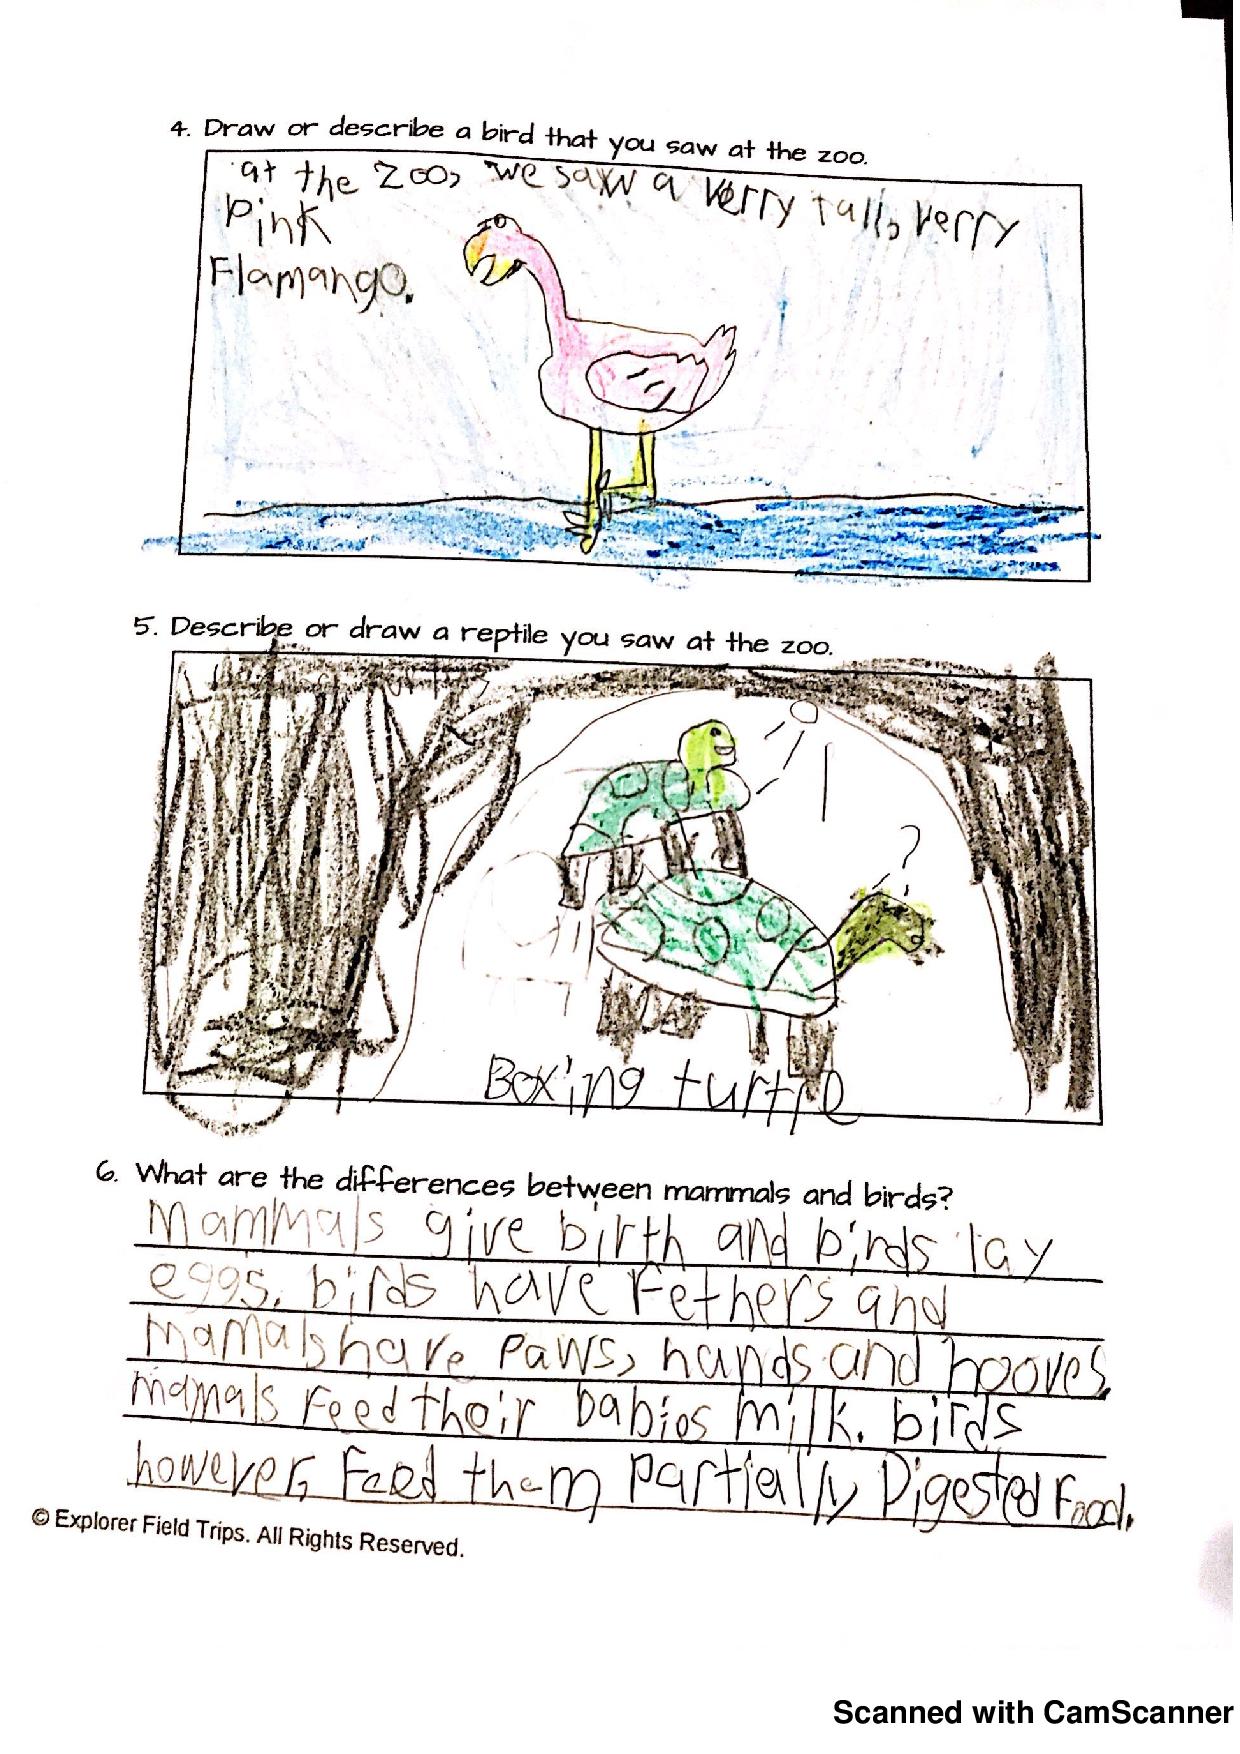 4. Draw or describe a bird that you saw at the zoo.
at the zoo, we saw a verry tall, verry
pink
Flamango.
5. Describe or draw a reptile you saw at the zoo.
?
Boxing turtle
6. What are the differences between mammals and birds?
Mammals give birth and birds lay
eggs. birds have Fethers and
mamals have paws, hands and hooves.
mamals Feed their babies milk. birds
however, Feed them partially Digested Food.
© Explorer Field Trips. All Rights Reserved.
Scanned with CamScanner